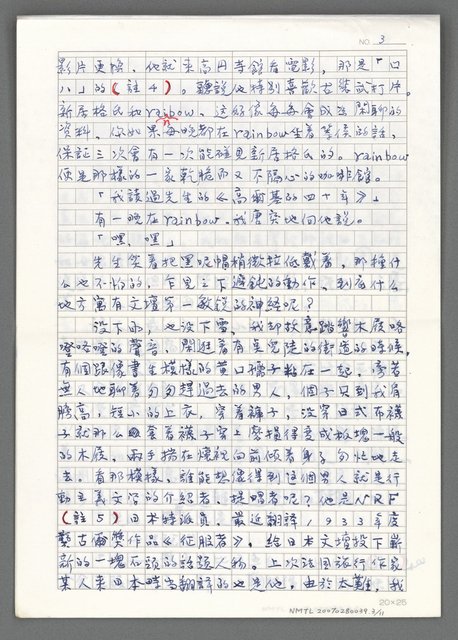 NO. 3
影片更換，他就來高円寺館看電影，那是「口
八」的（註4）。聽說他特別喜歡古裝武打片。
新居格氏和rainbow，這好像每每會成為閑聊的
資料。你如果每晚都在rainbow坐著等候的話，
保証三次會有一次能碰見新居格氏的。rainbow
便是那樣的一家乾淨而又不隔心的咖啡館。
「我讀過先生的《高爾基的四十年》」
有一晚在rainbow，我唐突地向他說。
「嘿、嘿」
先生笑著把黑呢帽稍微拉低戴著，那種什
么也不怕的，乍見之下遲鈍的動作，到底什么
地方寓有文壇第一敏銳的神經呢？
沒下雨，也沒下雪，我却故意踏響木屐咯
噔咯噔的聲音，閑逛著有臭覓徒的街道的時候，
有個很像書生模樣的
人和孩子粘在一起，旁若
無人地聊著匆匆趕過去的男人，個子只到我肩
膀高，短小的上衣，穿著褲子，沒穿日式布襪
子就那么套著襪子穿上磨損得變成板塊一般
的木屐，兩手揣在懷裡向前傾著身子匆忙地走
去。看那模樣，誰能想像得到這個男人就是行
動主義文學的介紹者、提唱者呢？他是NRF
（註5）日本特派員，最近翻譯1933年度
龔古爾獎作品《征服者》，給日本文壇投下嶄
新的一塊石頭的話題人物。上次法國旅行作家
某人來日本時當翻譯的也是他。由於太難，我
20×25
NMTL 20070280039 3/11